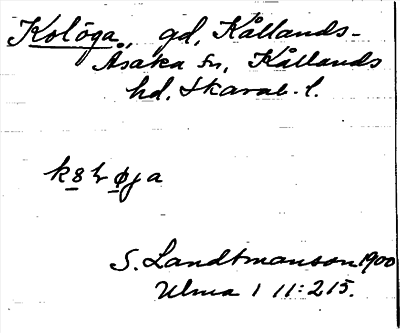 Kolöga, gd, Kållands-
Åsaka sn, Kållands
hd. Skarab. l.
S. Landtmanson 1900
Ulma 1 11:215.